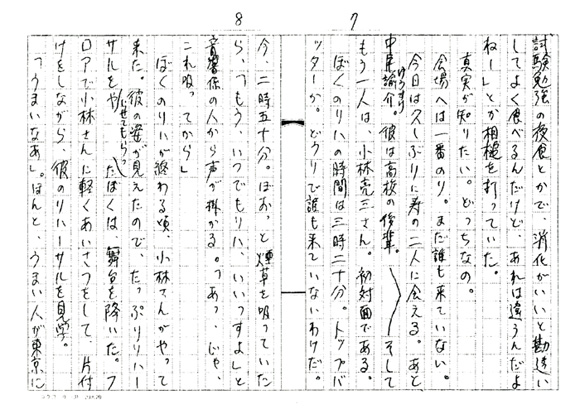 7
試験勉強の夜食とかで、消化がいいと勘違い
してよく食べるんだけど、あれは違うんだよ
ねー」とか相槌を打っていた。
真実が知りたい。どっちなの。
会場へは一番のり。まだ誰も来ていない。
今日は久しぶりに寿の二人に会える。あと
中尾諭介。彼は高校の後輩。そして
もう一人は、小林亮三さん。初対面である。
ぼくのリハの時間は三時二十分。トップバ
ッターか。どうりで誰も来ていないわけだ。
8
今、二時五十分。ぼおっと煙草を吸っていた
ら、「もう、いつでもリハ、いいっすよ」と
音響係の人から声が掛かる。「あっ、じゃ、
これ吸ってから」
ぼくのリハが終わる頃、小林さんがやって
来た。彼の姿が見えたので、たっぷりリハー
サルをやらせてもらったぼくは、舞台を降りた。フ
ロアで小林さんに軽くあいさつをして、片付
けをしながら、彼のリハーサルを見学。
「うまいなあ」。ほんと、うまい人が東京に